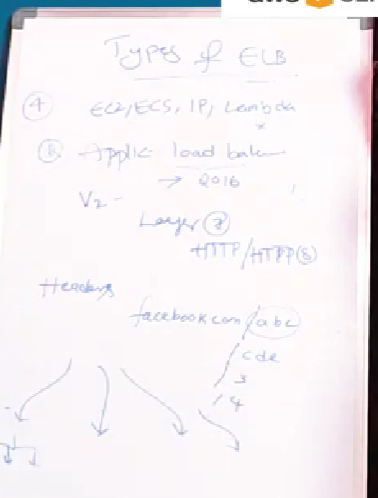 Types of ELB
④ EC2/ECS, IP, Lambda
Applic load
→ 2016
V2 -
Layer ⑦
HTTP/HTTP(S)
Headers
facebook.com/abc
/cde
/3
/4